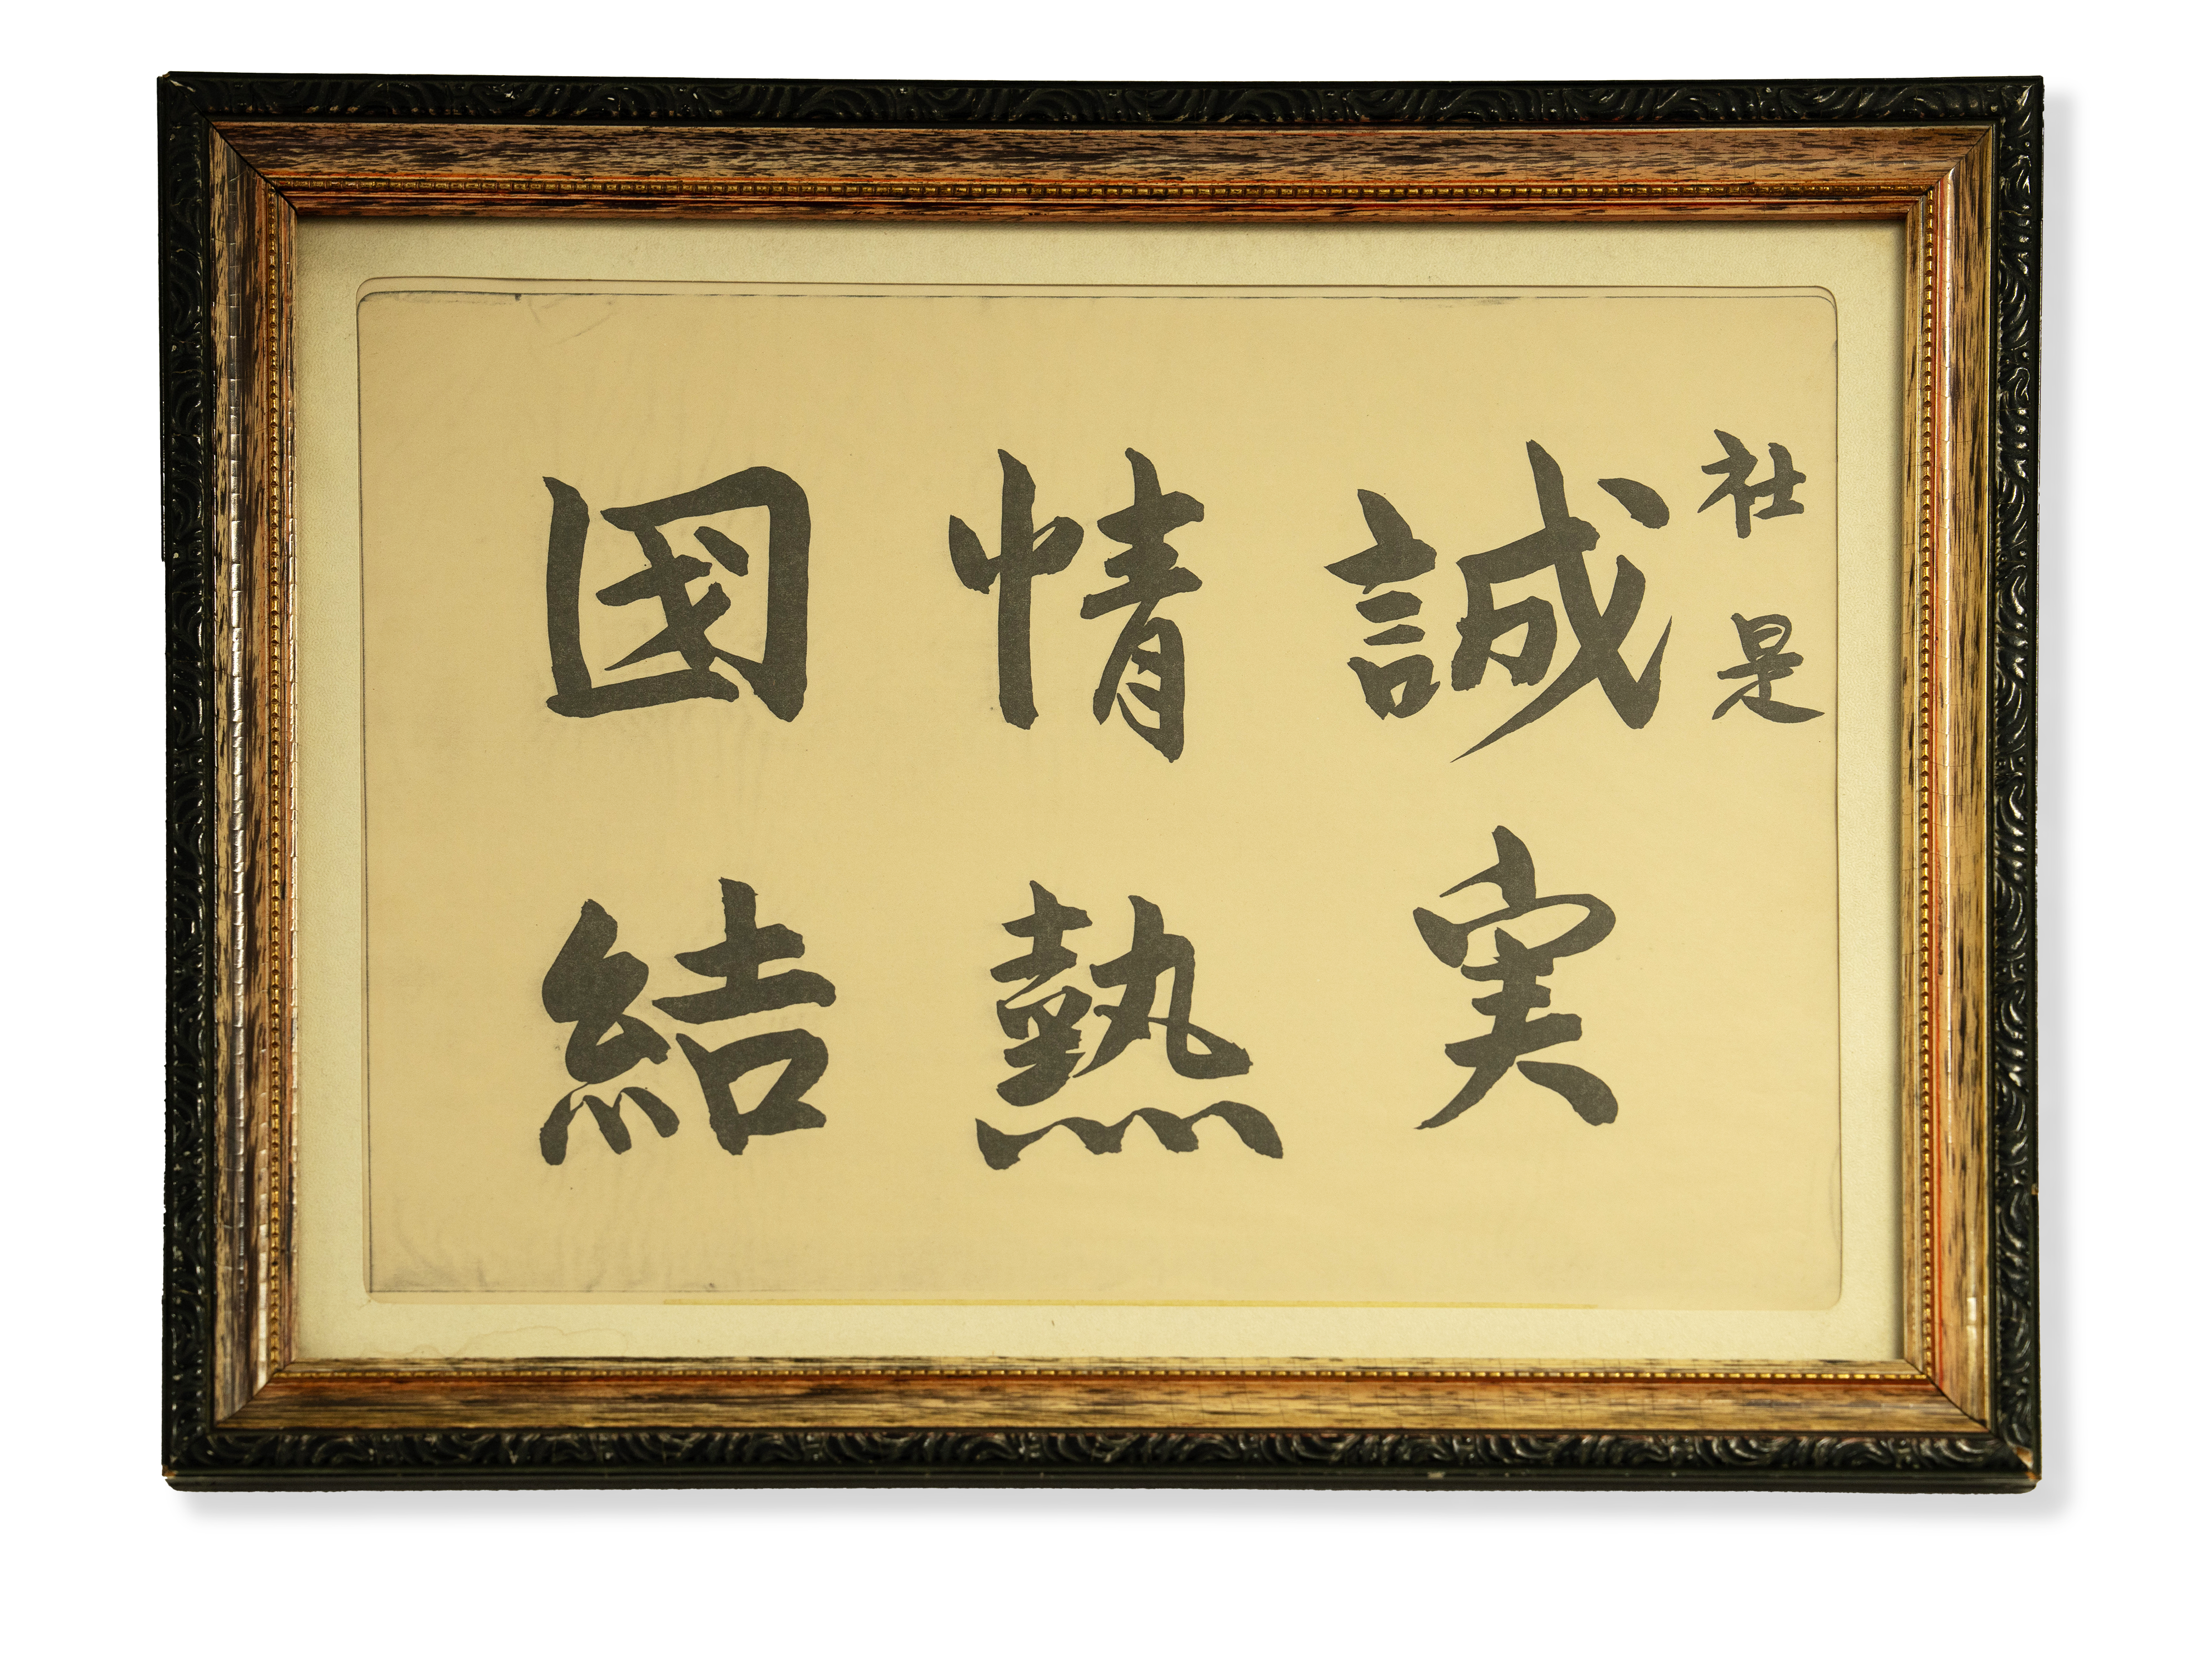 社是
誠実
情熱
団結